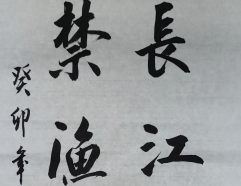 長江
禁渔
癸卯年